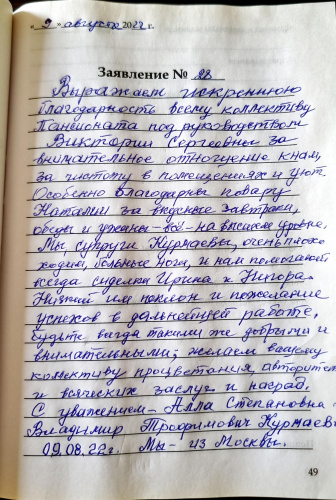 « 9 » августа 2022 г.
Заявление № 28
Выражаем искреннюю
благодарность всему коллективу
Пансионата под руководством
Виктории Сергеевны за
внимательное отношение к нам,
за чистоту в помещениях и уют.
Особенно благодарны повару
Наталии за вкусные завтраки,
обеды и ужины - всё - на высшем уровне.
Мы супруги Курмаевы, очень плохо
ходим, больные ноги, и нам помогают
всегда сиделки Ирина и Нигора.
Низкий им поклон и пожелание
успехов в дальнейшей работе,
будьте всегда такими же добрыми и
внимательными; желаем вашему
коллективу процветания, авторитета
и всяческих заслуг и наград.
С уважением - Алла Степановна и
Владимир Трофимович Курмаевы
09.08.22г. Мы - из Москвы.
49